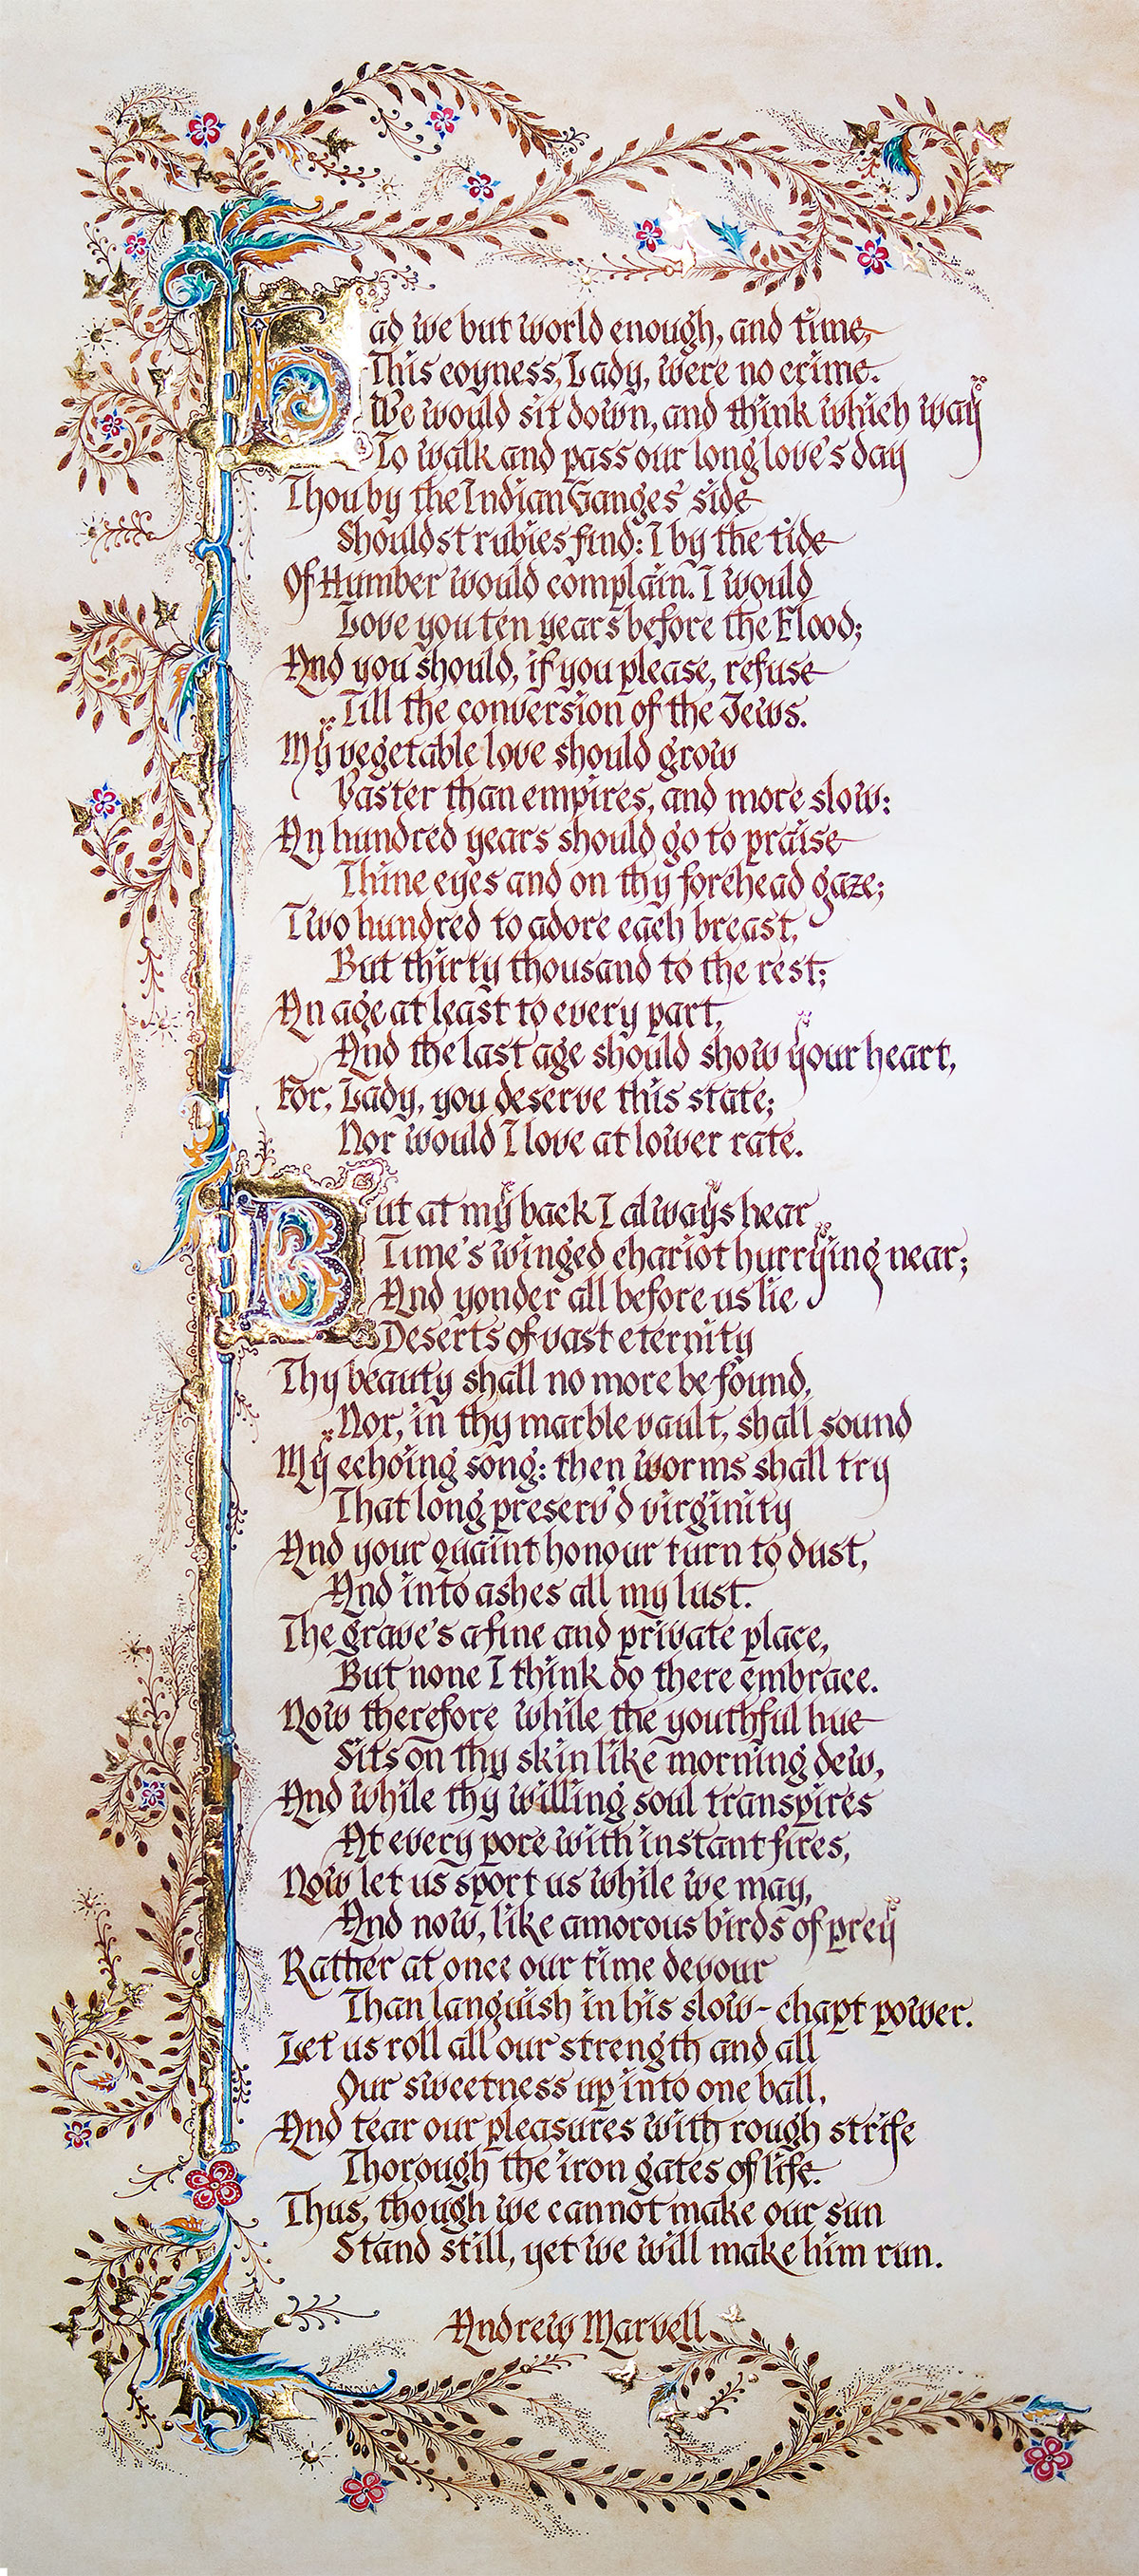 Had we but world enough, and time,
This coyness, Lady, were no crime.
We would sit down, and think which way
To walk and pass our long love's day
Thou by the Indian Ganges' side
Shouldst rubies find: I by the tide
Of Humber would complain. I would
Love you ten years before the Flood;
And you should, if you please, refuse
Till the conversion of the Jews.
My vegetable love should grow
Vaster than empires, and more slow:
An hundred years should go to praise
Thine eyes and on thy forehead gaze;
Two hundred to adore each breast,
But thirty thousand to the rest;
An age at least to every part,
And the last age should show your heart,
For, Lady, you deserve this state;
Nor would I love at lower rate.
But at my back I always hear
Time's winged chariot hurrying near;
And yonder all before us lie
Deserts of vast eternity
Thy beauty shall no more be found,
Nor, in thy marble vault, shall sound
My echoing song: then worms shall try
That long preserv'd virginity
And your quaint honour turn to dust,
And into ashes all my lust.
The grave's a fine and private place,
But none I think do there embrace.
Now therefore while the youthful hue
Sits on thy skin like morning dew,
And while thy willing soul transpires
At every pore with instant fires,
Now let us sport us while we may,
And now, like amorous birds of prey
Rather at once our time devour
Than languish in his slow-chapt power.
Let us roll all our strength and all
Our sweetness up into one ball,
And tear our pleasures with rough strife
Thorough the iron gates of life.
Thus, though we cannot make our sun
Stand still, yet we will make him run.
Andrew Marvell